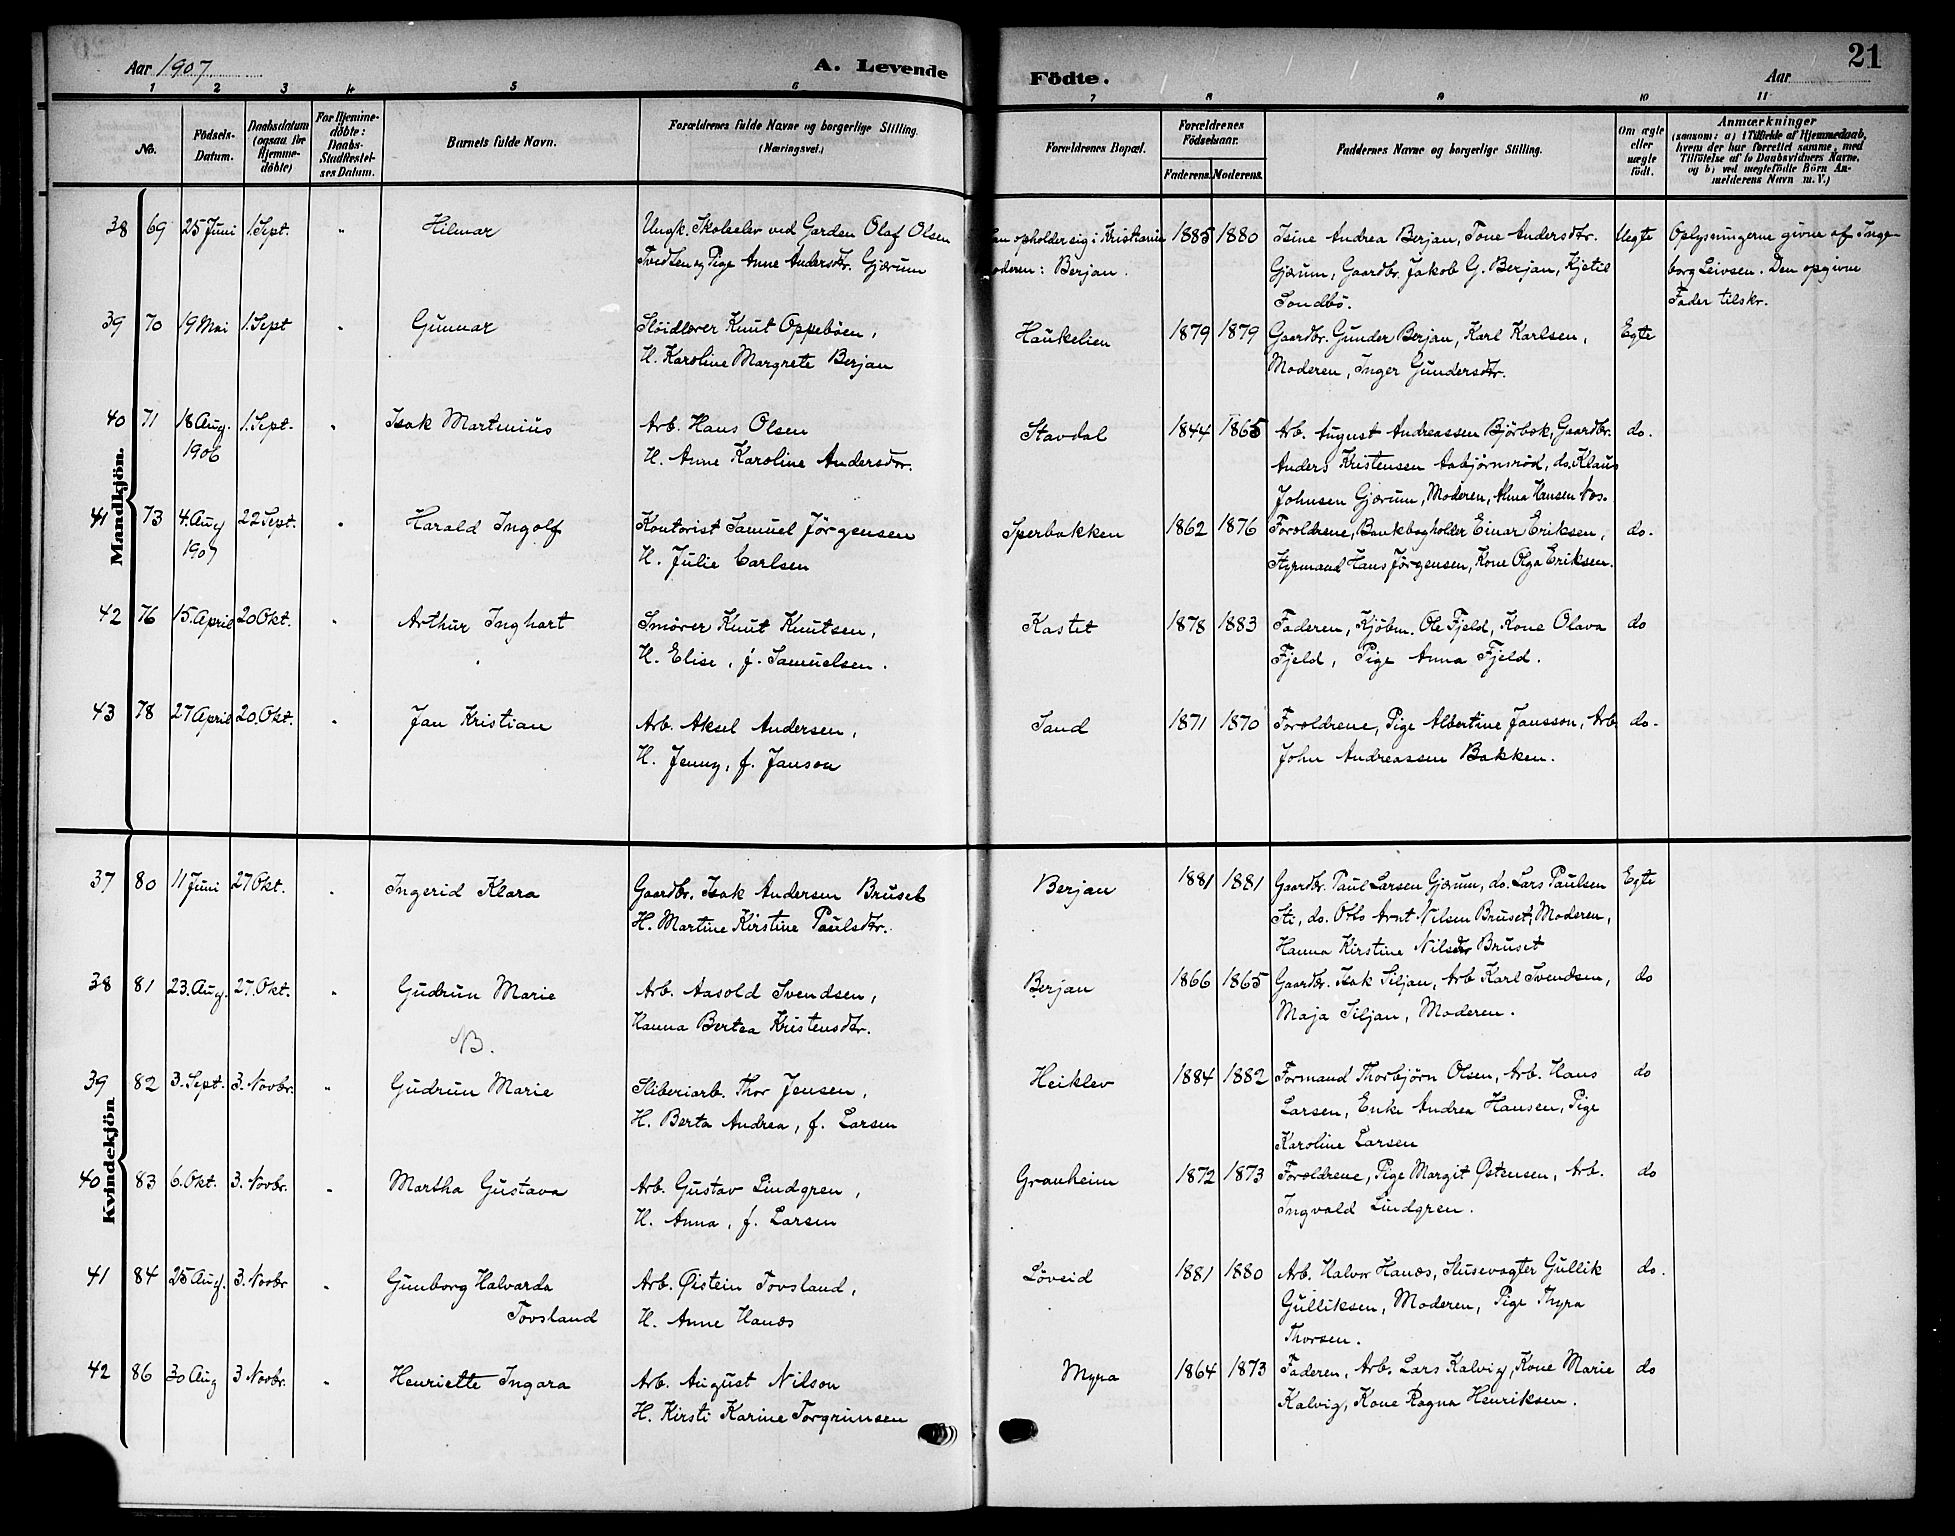 Aar 1907
A. Levende
Födte.
Aar
21
1 2 3 4 5 6 7 8 9 10 11
No.
Födsels-
Datum.
Daabsdatum
(ogsaa for
Hjemme-
döbte)
For Hjemme-
döbte:
Daabs-
Stadfæstel-
ses Datum.
Barnets fulde Navn.
Forældrenes fulde Navne og borgerlige Stilling.
(Næringsvei.)
Forældrenes Bopæl.
Forældrenes
Födselsaar.
Faderens.
Moderens.
Faddernes Navne og borgerlige Stilling.
Om ægte
eller
uægte
födt.
Anmærkninger
(saasom: a) i Tilfælde af Hjemmedaab,
hvem der har forrettet samme, med
Tilföielse af to Daabsvidners Navne,
og b) ved uægtefödte Börn An-
melderens Navn m. V.)
Mandkjön.
38 69 25 Juni 1. Sept. " Hilmar Ungk. Skoleelev ved Garden Olaf Olsen opholder sig i Kristiania 1885 1880 Isine Andrea Berjan, Tone Andersdtr. Uegte Oplysningerne givne af Inge-
Tvedten og Pige Anne Andersdtr. Gjærum Moderen: Berjan. Gjærum, Gaardbr. Jakob G. Berjan, Kjetil borg Leivsen. Den opgivne
Sondbö. Fader tilskr.
39 70 19 Mai 1. Sept " Gunnar Slöidlærer Knut Oppeböen, Haukelien 1879 1879 Gaardbr. Gunder Berjan, Karl Karlsen, Egte
H. Karoline Margrete Berjan Moderen, Inger Gundersdtr.
40 71 18 Aug. 1. Sept. " Isak Martenius Arb. Hans Olsen Stavdal 1844 1865 Arb. August Andreassen Björbæk, Gaardbr. do.
1906 H. Anne Karoline Andersdtr. Anders Kristensen Asbjörnsröd, do. Klaus
Johnsen Gjærum, Moderen, Alma Hansen Næs.
41 73 4. Aug 22 Sept. " Harald Ingolf Kontorist Samuel Jörgensen Sperbakken 1862 1876 Forældrene, Bankbogholder Einar Eriksen, do.
1907 H. Julie Carlsen Styrmand Hans Jörgensen, Kone Olga Eriksen.
42 76 15. April 20 Okt. " Arthur Inghart Smörer Knut Knutsen, Kastet 1878 1883 Faderen, Kjöbm. Ole Fjeld, Kone Olava do
H. Elise, f. Samuelsen. Fjeld, Pige Anna Fjeld.
43 78 27 April 20. Okt. " Jan Kristian Arb. Aksel Andersen, Sand 1871 1870 Forældrene, Pige Albertine Jansson, Arb do.
H. Jenny, f. Janson John Andreassen Bakken.
Kvindekjön
37 80 11 Juni 27 Okt. " Ingerid Klara Gaardbr. Isak Andersen Bruset Berjan 1881 1881 Gaardbr. Paul Larsen Gjærum, do. Lars Paulsen Egte
H. Martine Kirstine Paulsdtr. Sti, do. Otto Arnt Nilsen Bruset, Moderen,
Hanna Kirstine Nilsdtr Bruset
38 81 23. Aug. 27. Okt. " Gudrun Marie Arb. Aasold Svendsen, Berjan 1866 1865 Gaardbr. Isak Siljan, Arb Karl Svendsen, do
Hanna Bertea Kristensdtr. Maja Siljan, Moderen.
NB.
39 82 3. Sept. 3. Novbr. " Gudrun Marie Sliberiarb. Thor Jensen, Heiklev 1884 1882 Formand Thorbjörn Olsen, Arb. Hans do
H. Berta Andrea, f. Larsen Larsen, Enke Andrea Hansen, Pige
Karoline Larsen
40 83 6. Okt. 3. Novbr. " Martha Gustava Arb. Gustav Lindgren, Granheim 1872 1873 Forældrene, Pige Margit Østensen, Arb. do
H. Anna, f. Larsen Ingvald Lindgren.
41 84 25 Aug. 3. Novbr " Gunborg Halvarda Arb. Øistein Tovsland, Löveid 1881 1880 Arb. Halvor Hanæs, Slusevogter Gullik do.
Tovsland H. Anne Hanæs Gulliksen, Moderen, Pige Thyra
Thorsen.
42 86 30 Aug 3 Novbr. " Henriette Ingara Arb. August Nilson Myra 1864 1873 Faderen, Arb. Lars Kalvig, Kone Marie do
H. Kirsti Karine Torgrimsen Kalvig, Kone Ragna Henriksen.